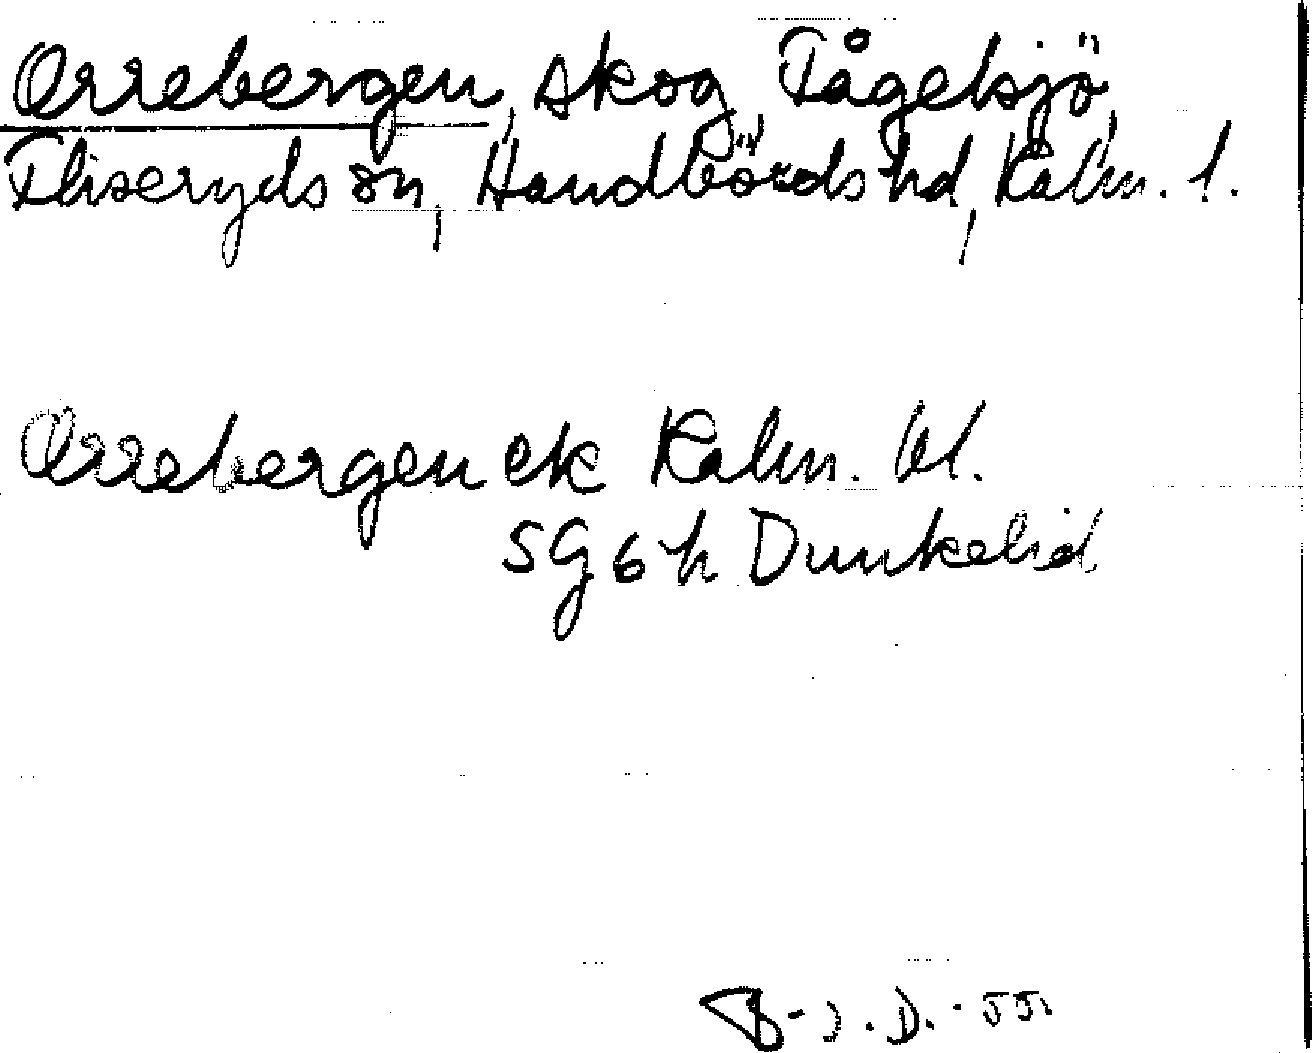 Orrebergen, skog, Tågelsjö,
Fliseryds sn, Handbörds hd, Kalm. l.
Orrebergen ek Kalm. bl.
5G6h Dunkelid
B-J. D. -55.